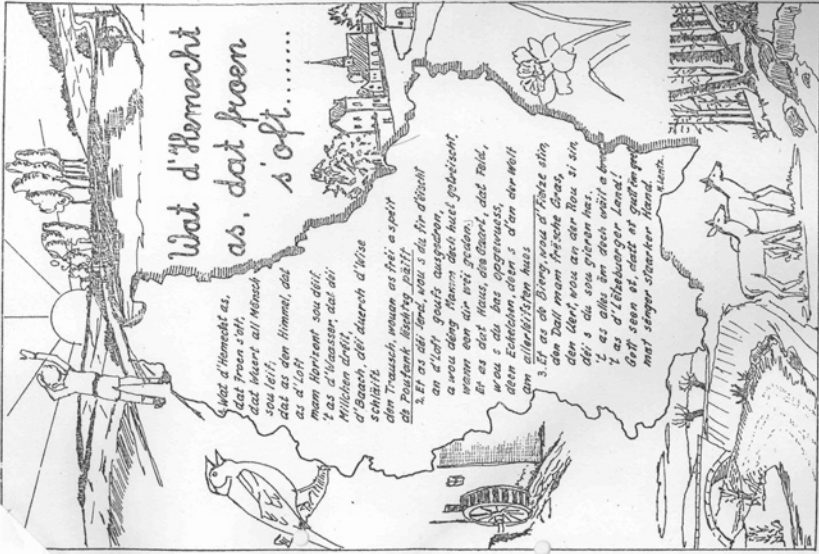 Wat d'Hemecht
as, dat froen
s'oft........
1. Wat d'Hemecht as,
dat froen s'oft,
dat Wuert all Mënsch
sou léif;
dat as den Himmel, dat
as d'Loft
mam Horizont sou déif.
't as d'Waasser, dat déi
Millchen dréit,
d'Baach, déi duerch d'Wise
schläift
den Trausch, wouen as fréi a spéit
de Poufank lëschteg päift
2. Et as déi Ierd, wou s du fir d'éischt
an d'Loft gouts ausgedron,
a wou déng Mamm dech huet gebréischt
wann een dir wéi gedon.
Et as dat Haus, dee Gaart, dat Feld,
wou s du bas opgewuess,
deen Eckelchen, deen s d'an der Welt
am allerléifsten hues
3. Et as de Bierg, wou d'Fielze stin,
den Dall mam frësche Gras,
den Uert, wou an der Rou si sin,
déi s du sou gieren has.
't as alles ëm dech wäit a
't as d'Lëtzebuerger Land!
Gott seen et, datt et gutt ëm geet
mat senger staarker Hand.